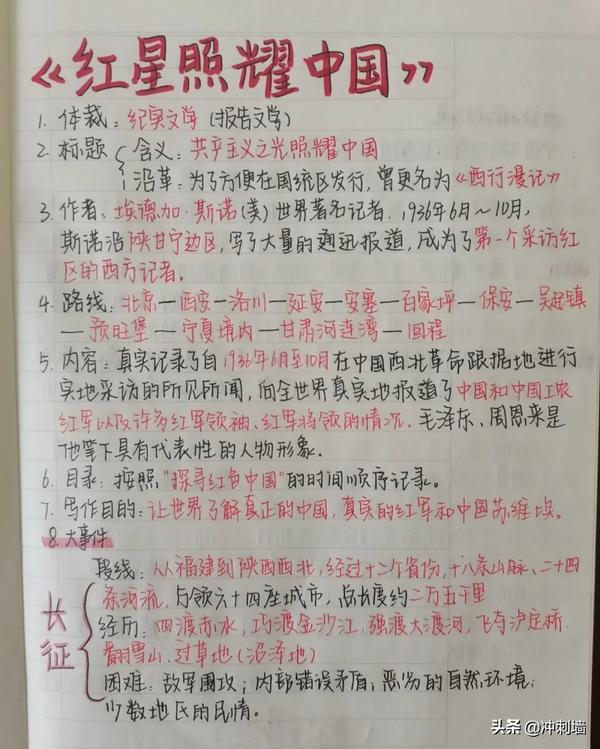 《红星照耀中国》
1. 体裁：纪实文学（报告文学）
2. 标题{含义：共产主义之光照耀中国
沿革：为了方便在国统区发行，曾更名为《西行漫记》
3. 作者：埃德加·斯诺（美）世界著名记者．1936年6月～10月，
斯诺沿陕甘宁边区，写了大量的通迅报道，成为了第一个采访红
区的西方记者。
4. 路线：北京—西安—洛川—延安—安塞—百家坪—保安—吴起镇
—预旺堡—宁夏境内—甘肃河连湾—回程
5. 内容：真实记录了自1936年6月至10月在中国西北革命跟据地进行
实地采访的所见所闻，向全世界真实地报道了中国和中国工农
红军以及许多红军领袖、红军将领的情况．毛泽东、周恩来是
他笔下具有代表性的人物形象．
6. 目录：按照"探寻红色中国"的时间顺序记录。
7. 写作目的：让世界了解真正的中国，真实的红军和中国苏维埃。
8. 大事件
长征
段线：从福建到陕西西北，经过十二个省份，十八条山脉、二十四
条河流，占领六十四座城市，总长度约二万五千里
经历：四渡赤水，巧渡金沙江，强渡大渡河，飞夺泸定桥．
翻雪山、过草地（沼泽地）
困难：敌军围攻；内部错误矛盾；恶劣的自然环境；
少数地区的民情。
头条 @冲刺墙